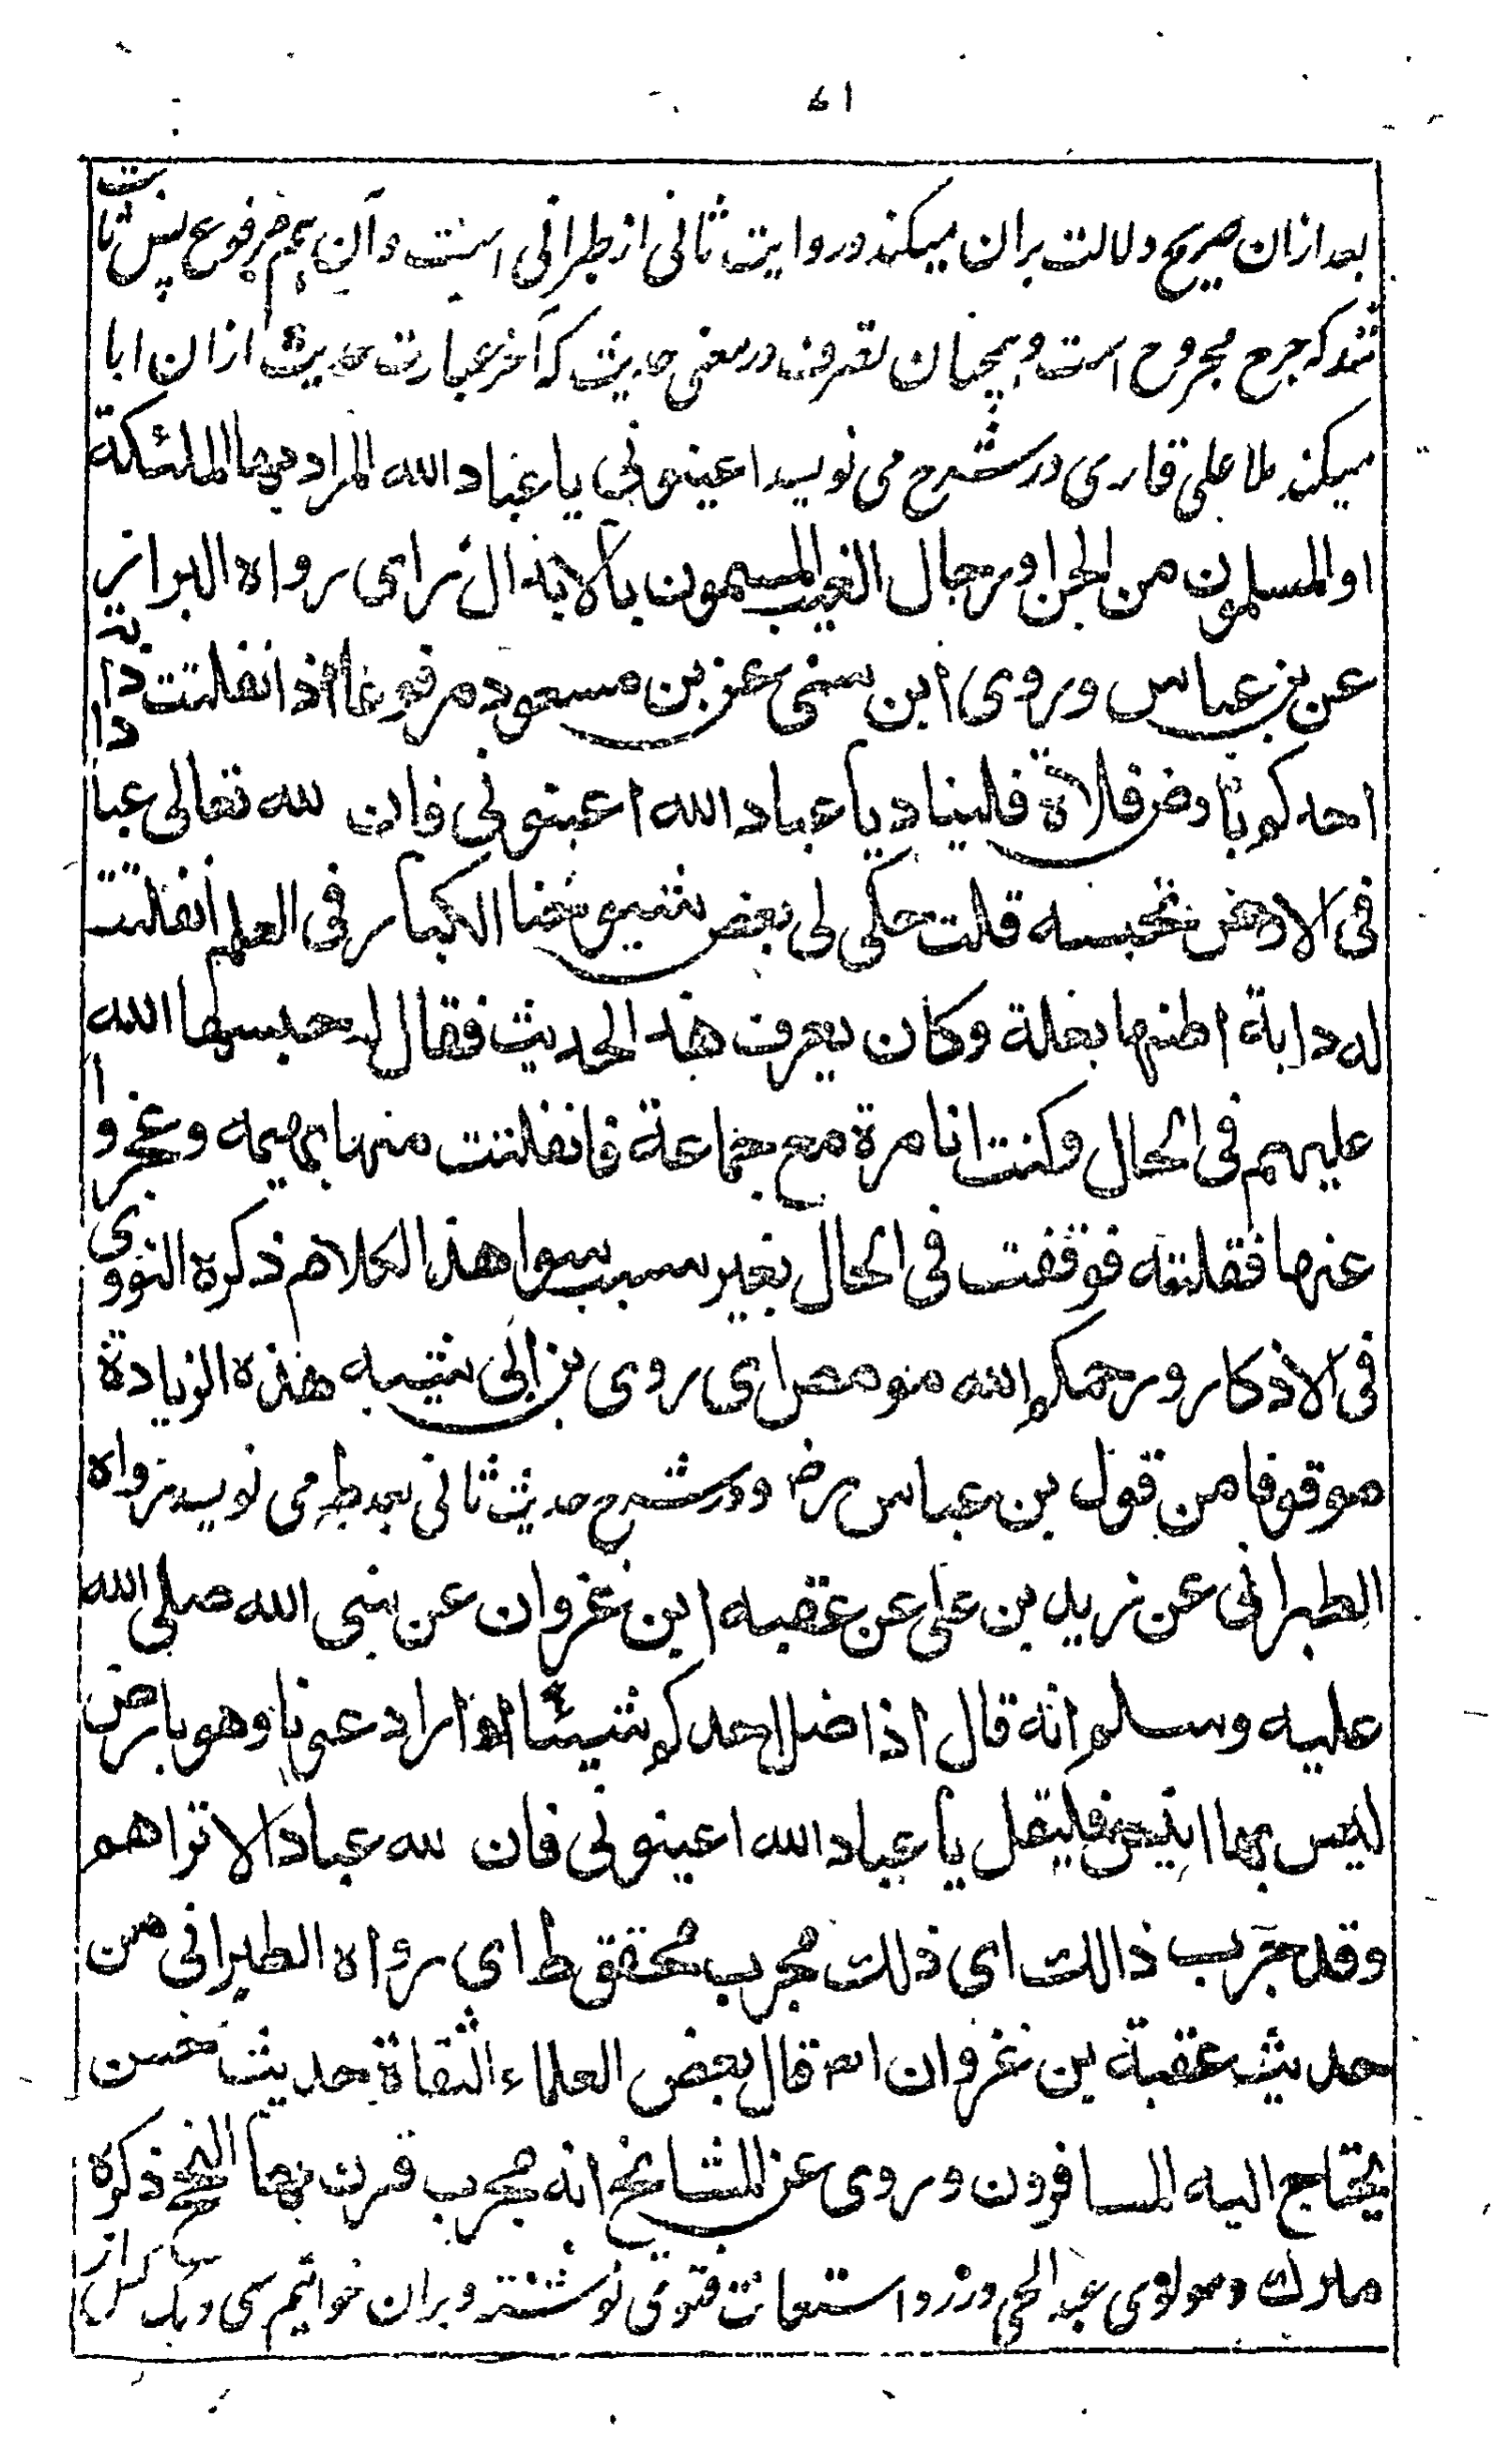 ۱۶
بعد ازان صریح دلالت بران میکند و روایت ثانی از طبرانی است و آن هم مرفوع پس ثابت
شد که جرح مجروح است و همچنان تصرف در معنی حدیث که آخر عبارت حدیث ازان ابا
میکند ملا علی قاری در شرح می نویسد اعینونی یا عباد الله المراد بهما الملئکة
او المسلمون من الجن او رجال الغیب المسمون بالابدال ای رواه البزار
عن بن عباس وروی ابن سنی عن بن مسعود مرفوعا اذا انفلتت دابة
احدکم بارض فلاة فلیناد یا عباد الله اعینونی فان لله تعالی عبادا
فی الارض تحبسه قلت حکی لی بعض شیوخنا الکبار فی العلم انفلتت
له دابة اظنها بغلة وکان یعرف هذ الحدیث فقال له حبسها الله
علیهم فی الحال وکنت انا مرة مع جماعة فانفلتت منها بهیمه وعجزوا
عنها فقلته فوقفت فی الحال بغیر سبب سوا هذ الکلام ذکره النووی
فی الاذکار ورحمکم الله مو مص ای روی بن ابی شیبه هذه الزیادة
موقوفا من قول بن عباس رض و در شرح حدیث ثانی بعد ط می نویسد رواه
الطبرانی عن زید بن علی عن عقبه ابن غزوان عن نبی الله صلی الله
علیه وسلم انه قال اذا ضل احدکم شیئا او اراد عونا وهو بارض
لیس بها انیس فلیقل یا عباد الله اعینونی فان لله عبادا لا تراهم
وقد جرب ذالک ای ذلک مجرب محقق ط ای رواه الطبرانی من
حدیث عقبة بن غزوان اه قال بعض العلماء الثقاة حدیث حسن
یحتاج الیه المسافرون وروی عن المشایخ انه مجرب قرن بها النجح ذکره
میرک و مولوی عبد الحی در رد استعانت فتوی نوشته و بران خواتیم سی و یک کس از